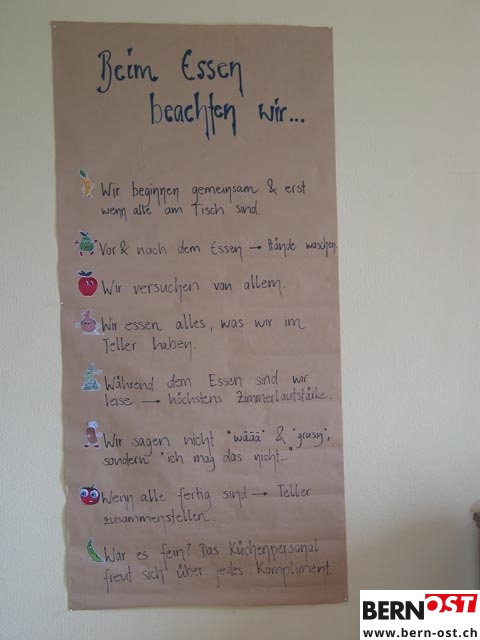 Beim Essen
beachten wir...
Wir beginnen gemeinsam & erst
wenn alle am Tisch sind.
Vor & nach dem Essen → Hände waschen.
Wir versuchen von allem.
Wir essen alles, was wir im
Teller haben.
Während dem Essen sind wir
leise → höchstens Zimmerlautstärke.
Wir sagen nicht "wäää" & "grusig",
sondern "ich mag das nicht..."
Wenn alle fertig sind → Teller
zusammenstellen.
War es fein? Das Küchenpersonal
freut sich über jedes Kompliment.
BERNOST
www.bern-ost.ch